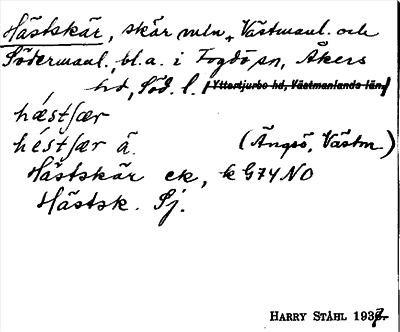 Hästskär, skär mln. Västmanl. och
Södermanl., bl.a. i Fogdö sn, Åkers
hd, Söd. l. (Yttertjurbo hd, Västmanlands län)
hǽstʃær
héstʃær ä. (Ängsö, Västm)
Hästskär ek, k G74 NO
Hästsk. Sj.
HARRY STÅHL 1937